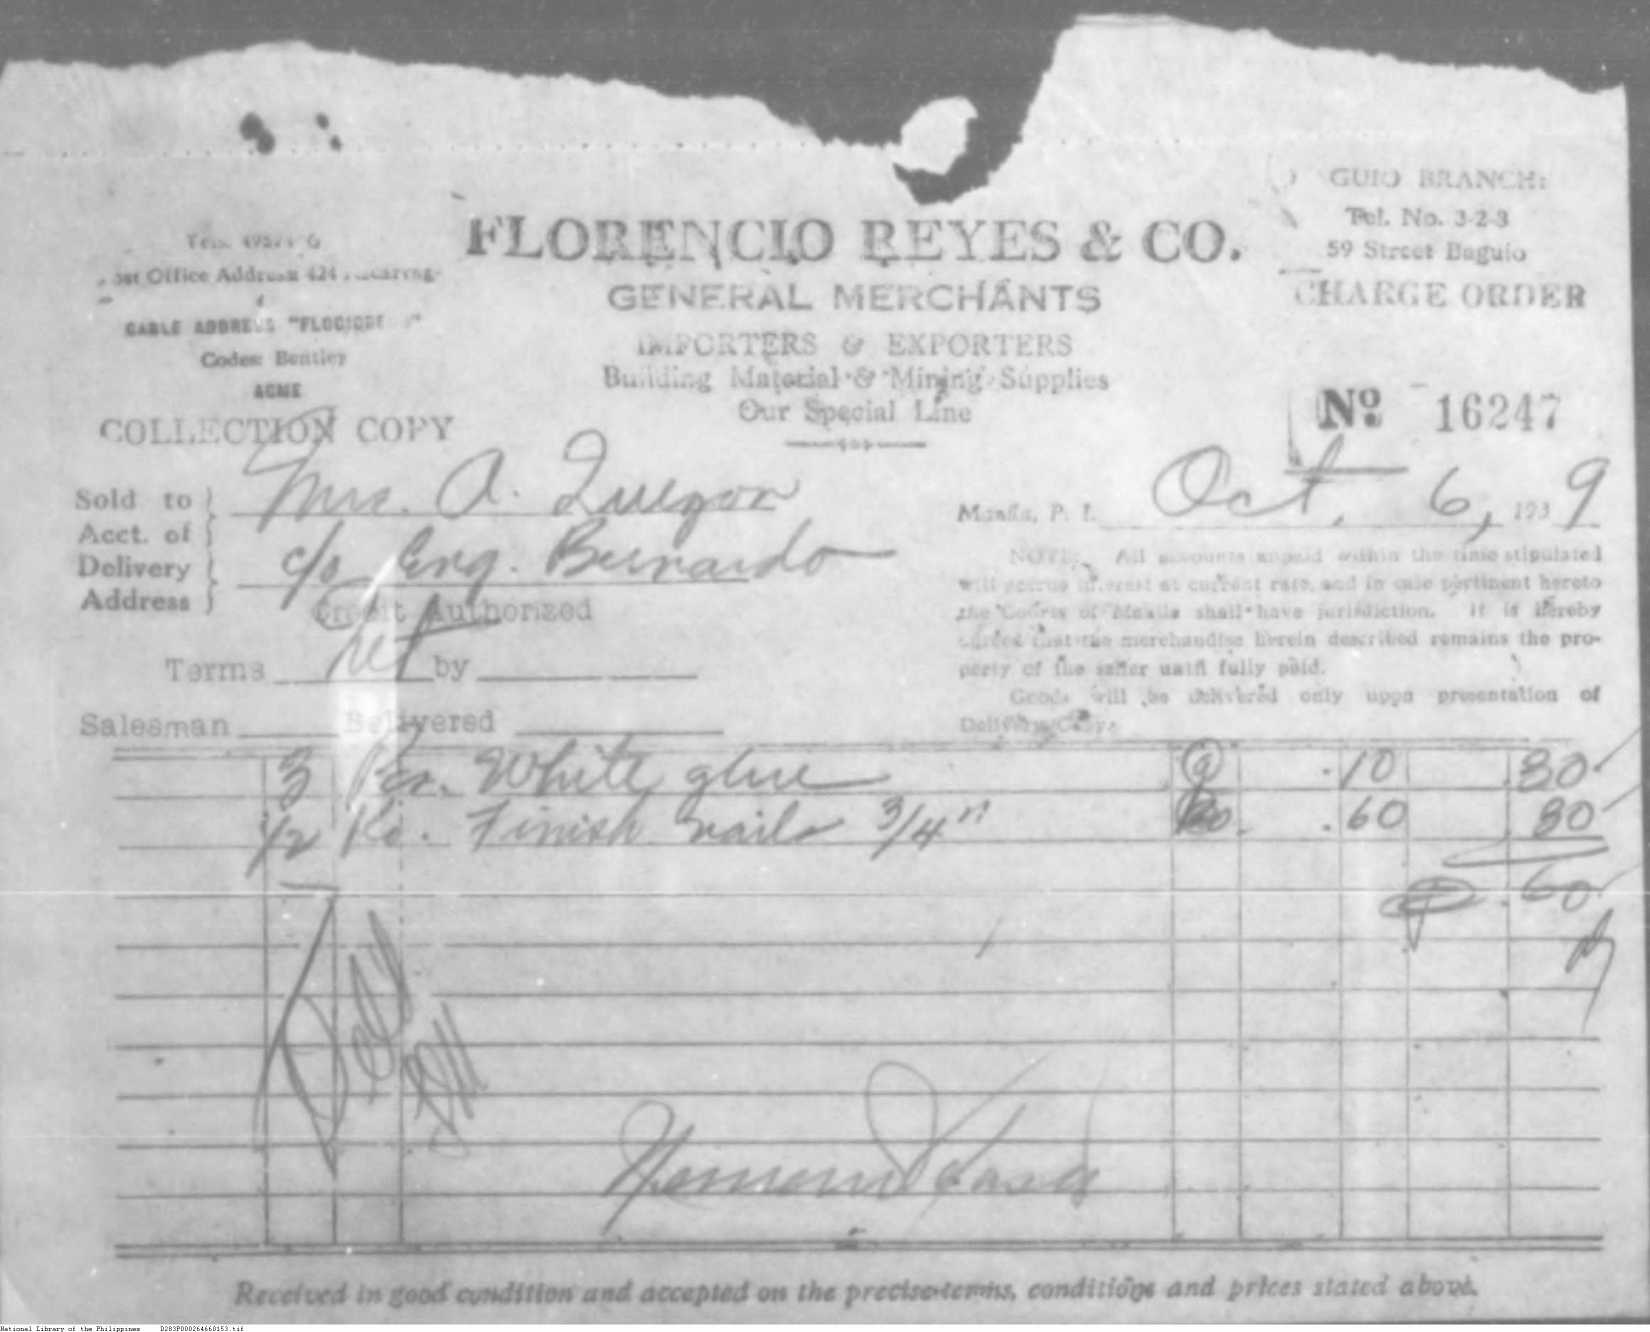 GUIO BRANCH:
Tel. No. 3-2-3
59 Street Baguio
CHARGE ORDER
Post Office Address 424
CABLE ADDRESS
Codes: Bentley
ACME
COLLECTION COPY
FLORENCIO REYES & CO.
GENERAL MERCHANTS
IMPORTERS & EXPORTERS
Building Material & Mining Supplies
Our Special Line
No 16247
Sold to
Acct. of
Delivery
Address
Mrs. A. Quezon
c/o Eng. Bernardo
Manila, P. I. Oct. 6, 1939
NOTE: All accounts unpaid within the time stipulated
will accrue interest at current rate, and in case pertinent hereto
the Courts of Manila shall have jurisdiction. It is hereby
agreed that the merchandise herein described remains the pro-
perty of the seller until fully paid.
Goods will be delivered only upon presentation of
Delivery Copy.
Credit Authorized
Terms by
Salesman Delivered
3 White glue @ .10 .30
1/2 Ko. Finish nails 3/4" Ko. .60 .30
.60
Received in good condition and accepted on the precise terms, conditions and prices stated above.
National Library of the Philippines D283P000264660153.tif